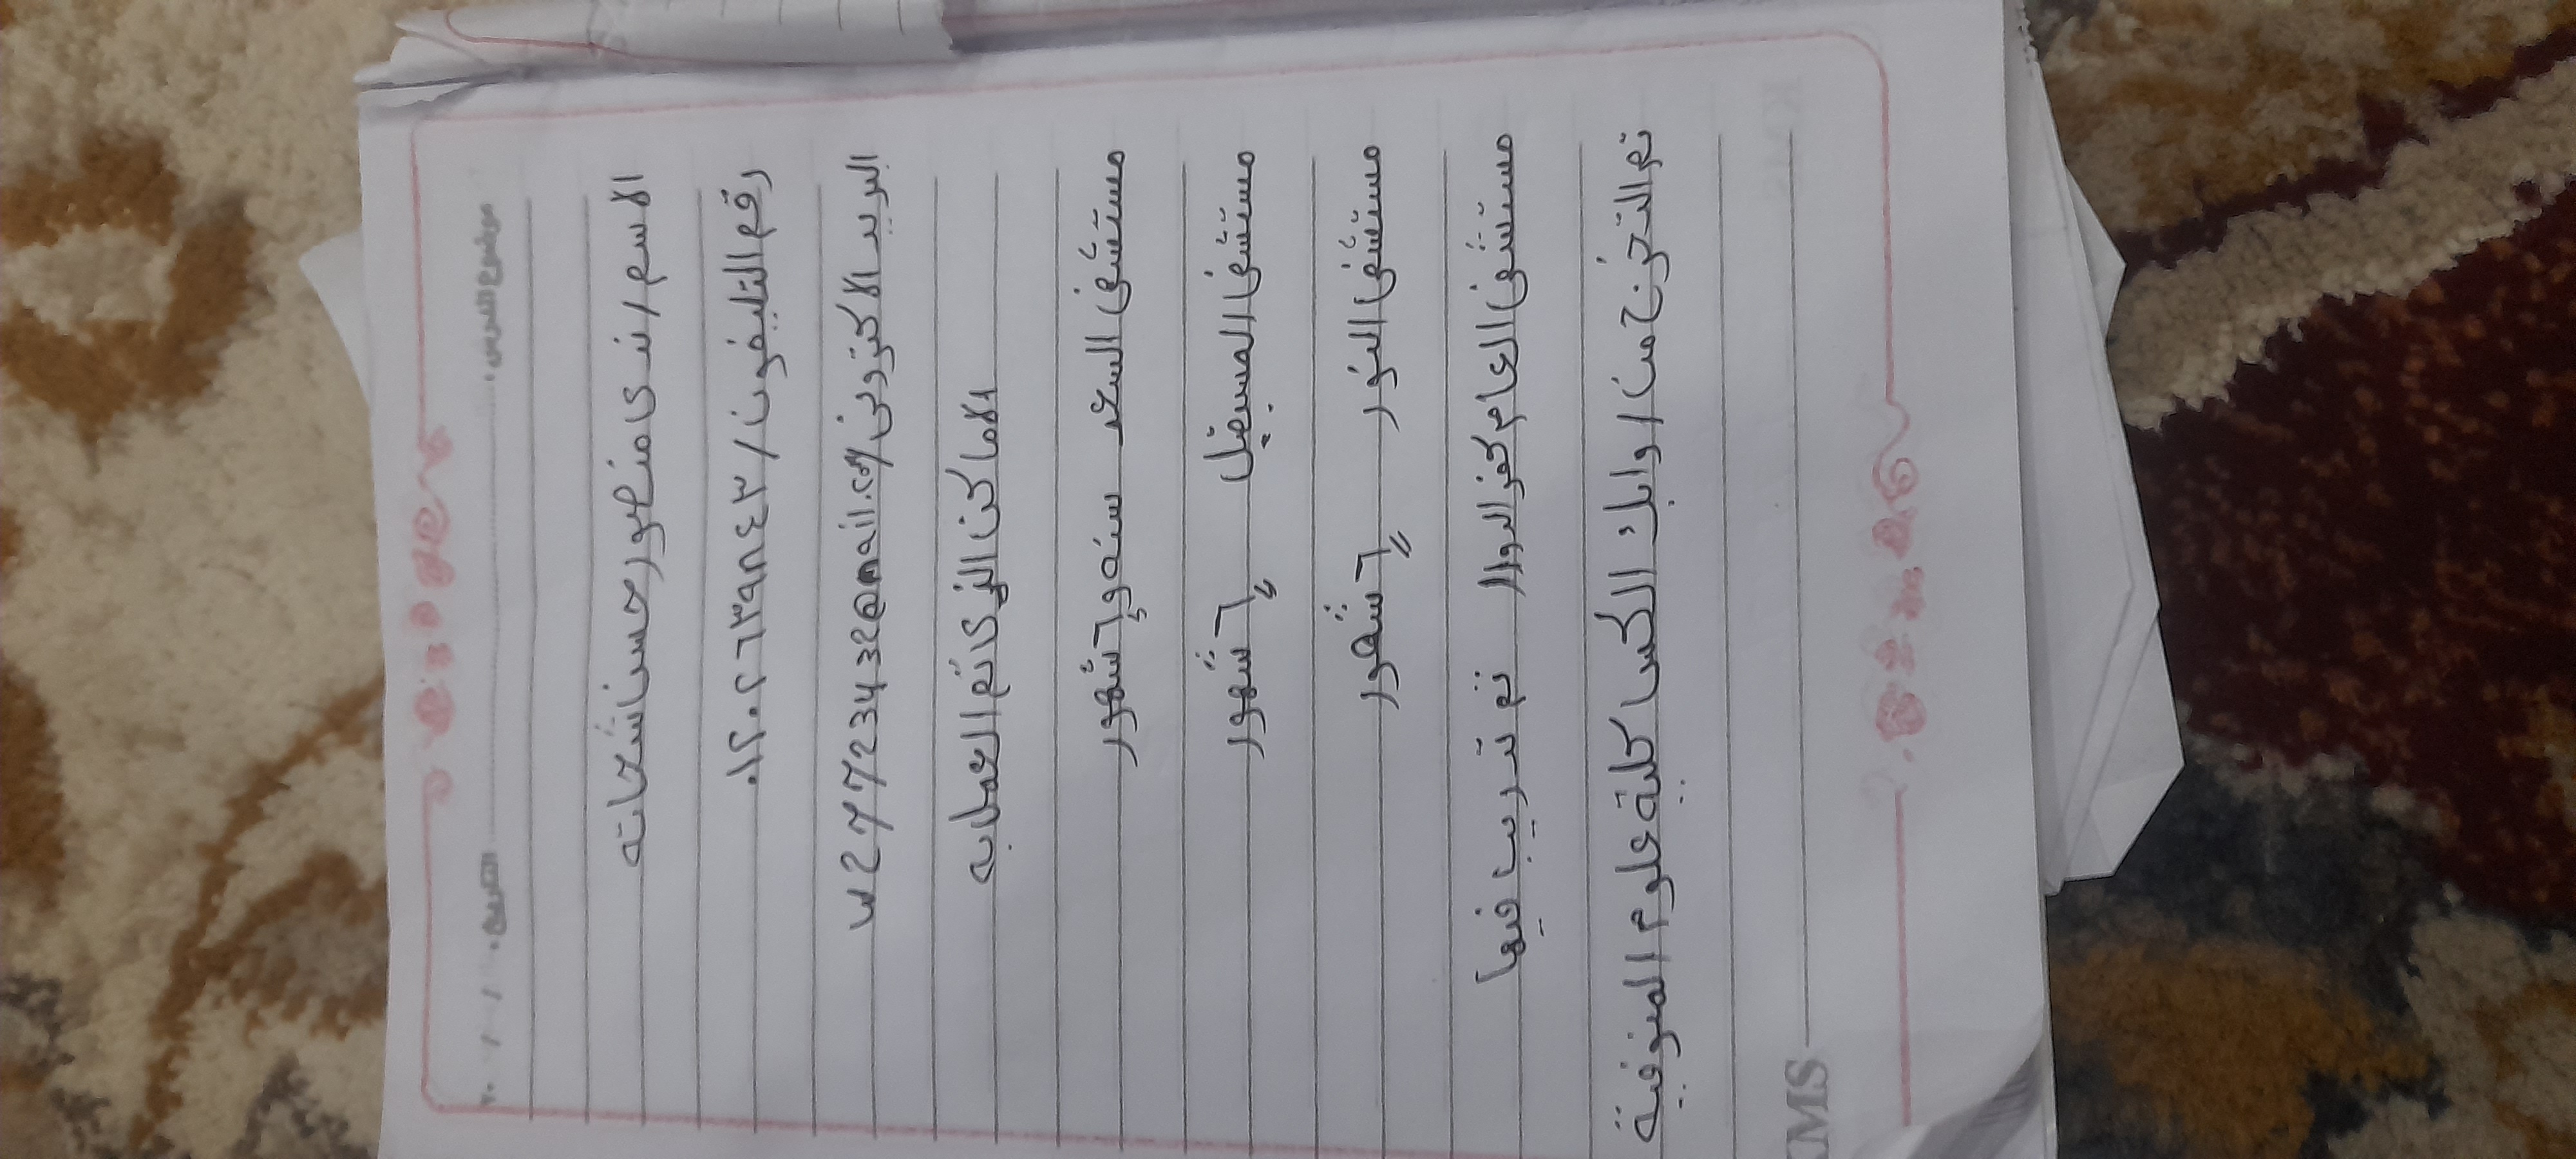 موضوع الدرس :
التاريخ : / / ٢٠
الاسم / ندى منصور حسن شحاته
رقم التليفون / ٠١٢٠٢٦٣٩٨٤٣
البريد الاكتروني / w27723432@gmail.com
الاماكن الذى تم العمل به
مستشفى السعد سنه و٦ شهور
مستشفى المستقبل ٦ شهور
مستشفى النور ٦ شهور
مستشفى العام كفر الدوار تم تدريب فيها
تم التخرج من / اوائل الكمياء كلية علوم المنوفية
KMS